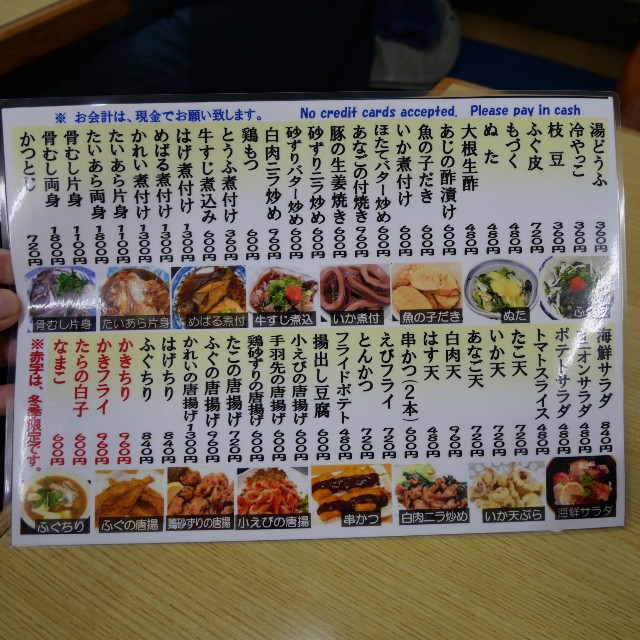 ※ お会計は、現金でお願い致します。 No credit cards accepted. Please pay in cash
湯どうふ 360円
冷やっこ 300円
枝豆 360円
ふぐ皮 720円
もづく 480円
ぬた 480円
大根生酢 480円
あじの酢漬け 600円
魚の子だき 600円
いか煮付け 600円
ほたてバター炒め 600円
あなごの付焼き 960円
豚の生姜焼き 600円
砂ずりニラ炒め 600円
砂ずりバター炒め 600円
白肉ニラ炒め 960円
鶏もつ 600円
とうふ煮付け 360円
牛すじ煮込み 600円
はげ煮付け 1300円
めばる煮付け 1300円
かれい煮付け 1300円
たいあら片身 1100円
たいあら両身 1800円
骨むし片身 1100円
骨むし両身 1800円
かつとじ 720円
骨むし片身
たいあら片身
めばる煮付
牛すじ煮込
いか煮付
魚の子だき
ぬた
海鮮サラダ 840円
オニオンサラダ 480円
ポテトサラダ 480円
トマトスライス 480円
たこ天 720円
いか天 720円
あなご天 720円
白肉天 960円
はす天 480円
串かつ(2本) 600円
えびフライ 720円
とんかつ 720円
フライドポテト 480円
揚出し豆腐 480円
小えびの唐揚げ 600円
手羽先の唐揚げ 600円
鶏砂ずりの唐揚げ 600円
たこの唐揚げ 720円
ふぐの唐揚げ 960円
かれいの唐揚げ 1300円
はげちり 840円
ふぐちり 840円
かきちり 960円
かきフライ 960円
たらの白子 600円
なまこ 600円
※赤字は、冬季限定です。
ふぐちり
ふぐの唐揚
鶏砂ずりの唐揚
小えびの唐揚
串かつ
白肉ニラ炒め
いか天ぷら
海鮮サラダ